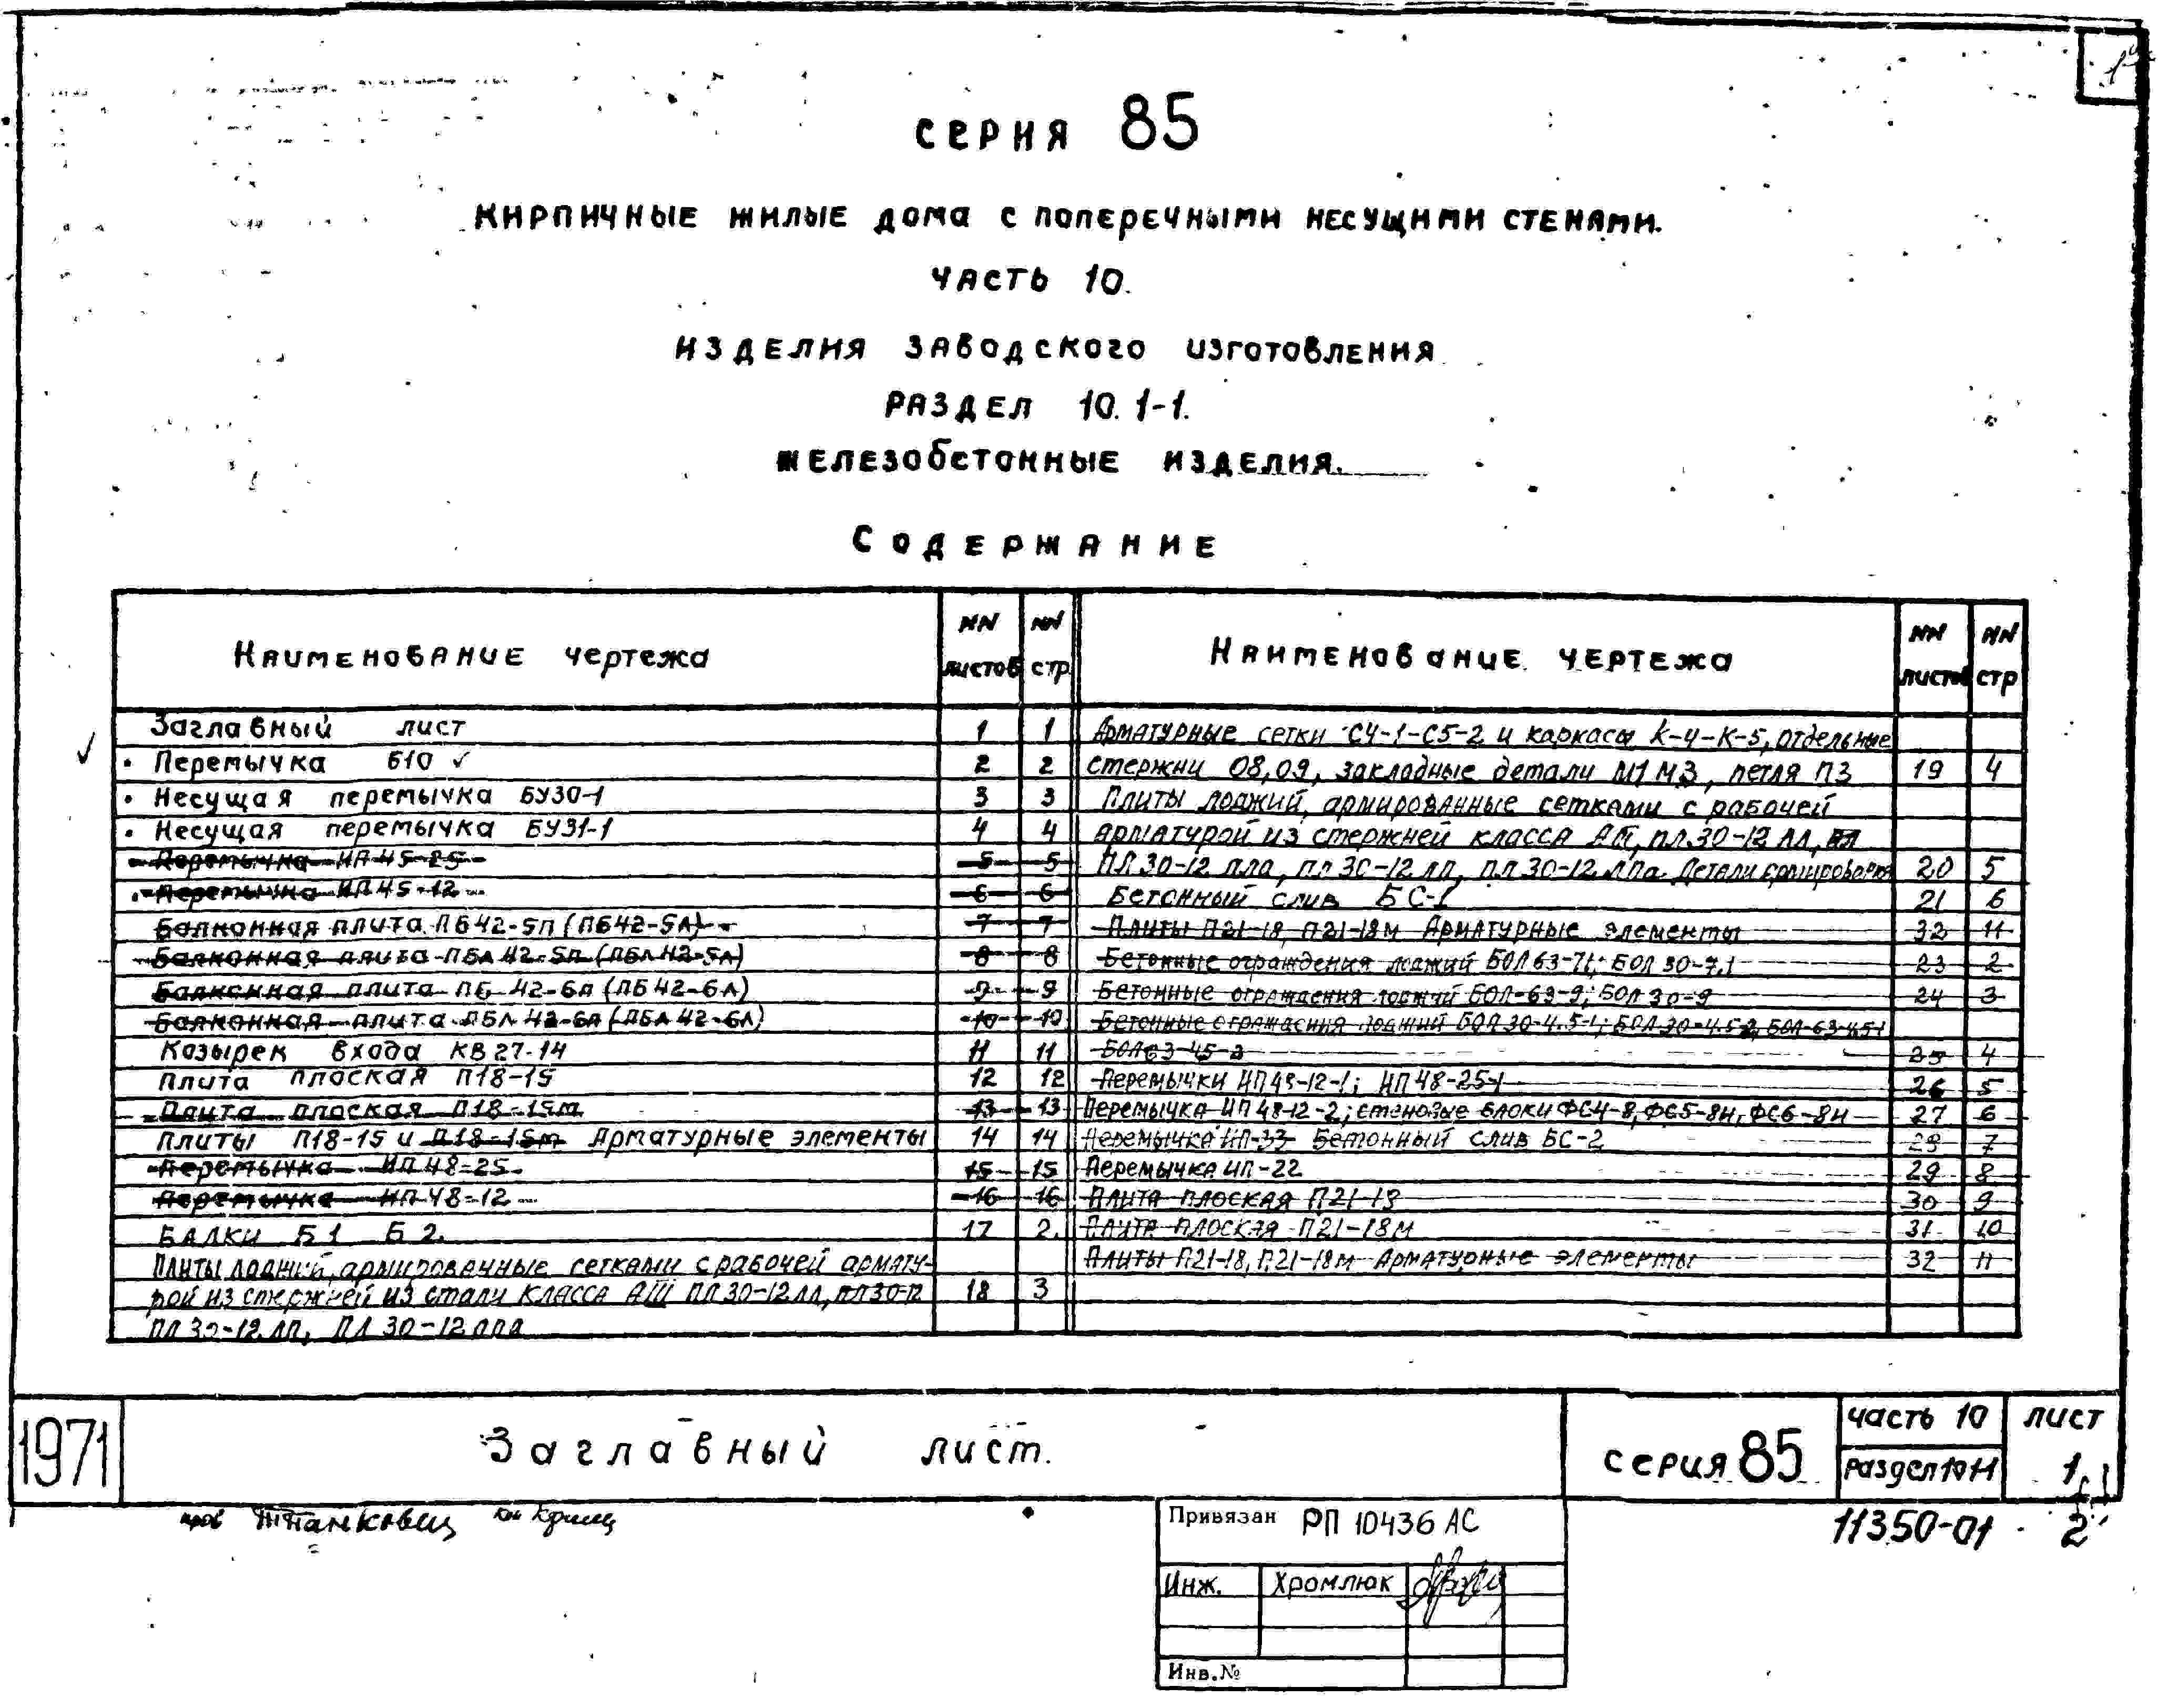 СЕРИЯ 85
КИРПИЧНЫЕ ЖИЛЫЕ ДОМА С ПОПЕРЕЧНЫМИ НЕСУЩИМИ СТЕНАМИ.
ЧАСТЬ 10.
ИЗДЕЛИЯ ЗАВОДСКОГО ИЗГОТОВЛЕНИЯ
РАЗДЕЛ 10.1-1.
ЖЕЛЕЗОБЕТОННЫЕ ИЗДЕЛИЯ.
СОДЕРЖАНИЕ
Наименование чертежа NN листов NN стр
Заглавный лист 1 1
Перемычка Б10 ✓ 2 2
Несущая перемычка БУ30-1 3 3
Несущая перемычка БУ31-1 4 4
Перемычка ИП45-25 5 5
Перемычка ИП45-12 6 6
Балконная плита ПБ42-5п (ПБ42-5Л) 7 7
Балконная плита ПБЛ 42-5п (ПБЛ 42-5Л) 8 8
Балконная плита ПБ 42-6п (ПБ 42-6Л) 9 9
Балконная плита ПБЛ 42-6п (ПБЛ 42-6Л) 10 10
Козырек входа КВ 27-14 11 11
Плита плоская П18-15 12 12
Плита плоская П18-15м 13 13
Плиты П18-15 и П18-15м Арматурные элементы 14 14
Перемычка ИП 48-25 15 15
Перемычка ИП 48-12 16 16
БАЛКИ Б1 Б2. 17 2
Плиты лоджий, армированные сетками с рабочей армату-
рой из стержней из стали класса АIII ПЛ30-12лл, 18 3
ПЛ30-12лп, ПЛ30-12лпа
Наименование чертежа NN листов NN стр
Арматурные сетки С4-1-С5-2 и каркасы К-4-К-5, отдельные
стержни 08,09, закладные детали М1 М3, петля П3 19 4
Плиты лоджий, армированные сетками с рабочей
арматурой из стержней класса АIII, пл.30-12 лл,
ПЛ30-12 лла, пл 30-12 лп, пл 30-12 лпа. Детали армирования 20 5
Бетонный слив БС-1 21 6
Плиты П21-18, П21-18м Арматурные элементы 32 11
Бетонные ограждения лоджий БОЛ 63-7.1; БОЛ 30-7.1 23 2
Бетонные ограждения лоджий БОЛ-63-9; БОЛ 30-9 24 3
Бетонные ограждения лоджий БОЛ 30-4.5-1; БОЛ 30-4.5-2; БОЛ-63-4.5-1
БОЛ63-45-2 25 4
Перемычки ИП48-12-1; ИП48-25-1 26 5
Перемычка ИП 48-12-2; стеновые блоки ФС4-8, ФС5-8Н, ФС6-8Н 27 6
Перемычка ИП-33 Бетонный слив БС-2 28 7
Перемычка ИП-22 29 8
Плита плоская П21-18 30 9
Плита плоская П21-18м 31 10
Плиты П21-18, П21-18м Арматурные элементы 32 11
1971
Заглавный лист.
серия 85
часть 10
раздел 10.1-1
лист
1
11350-01 2
Привязан РП 10436 АС
Инж. Хромлюк
Инв.№